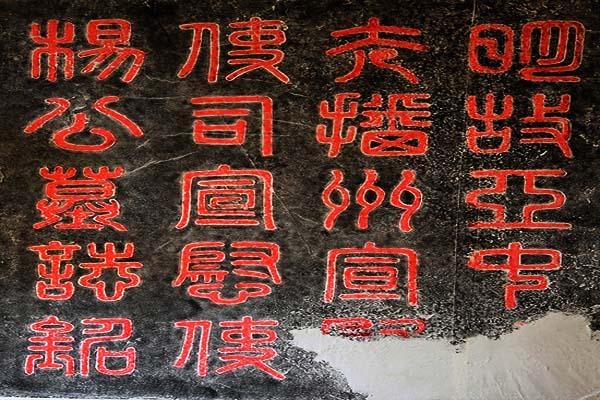 明故亞中
夫播州宣
使司宣慰使
楊公墓誌銘